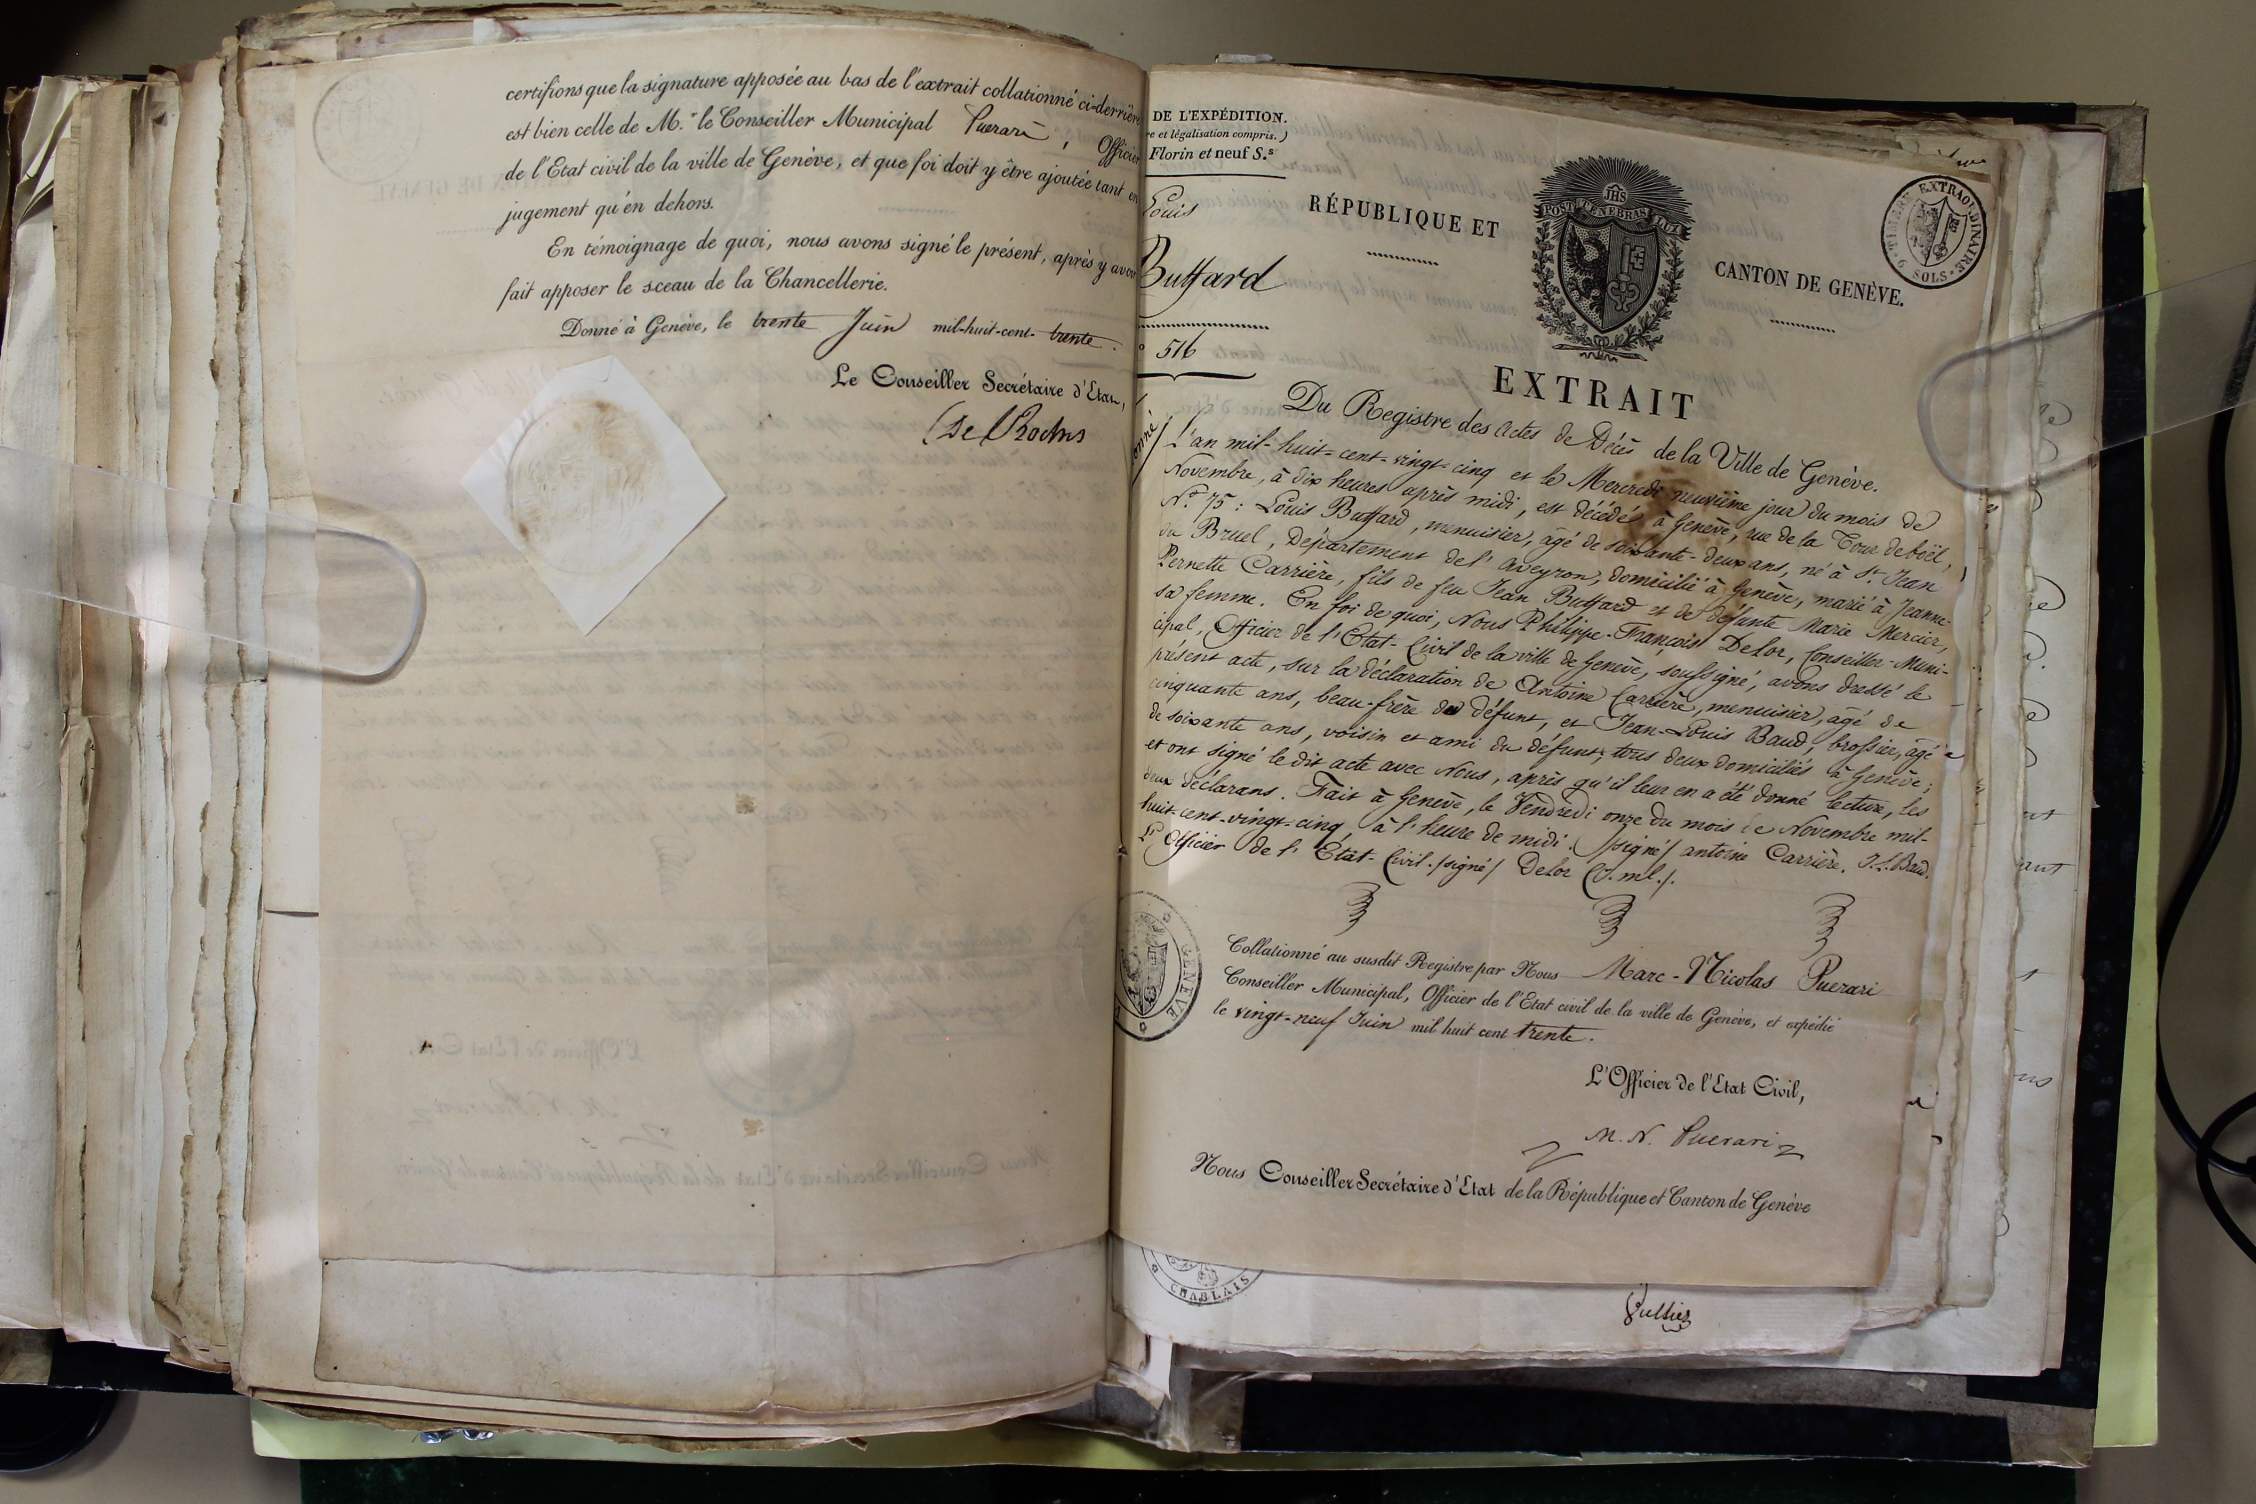 certifions que la signature apposée au bas de l'extrait collationné ci-derrière
est bien celle de M.r le Conseiller Municipal Puerari, Officier
de l'Etat civil de la ville de Genève, et que foi doit y être ajoutée tant en
jugement qu'en dehors.
En témoignage de quoi, nous avons signé le présent, après y avoir
fait apposer le sceau de la Chancellerie.
Donné à Genève, le trente Juin mil-huit-cent-trente.
Le Conseiller Secrétaire d'Etat,
De Roches
DE L'EXPÉDITION.
re et légalisation compris.)
Florin et neuf S.s
Louis
Buffard
516
RÉPUBLIQUE ET
JHS
POST TENEBRAS LUX
CANTON DE GENÈVE.
TIMBRE EXTRAORDINAIRE
9 SOLS
EXTRAIT
Du Registre des Actes de Décès de la Ville de Genève.
L'an mil-huit-cent-vingt-cinq et le Mercredi neuvième jour du mois de
Novembre, à dix heures après midi, est décédé à Genève, rue de la Tour de boël,
N.o 75: Louis Buffard, menuisier, âgé de soixante-deux ans, né à St. Jean
du Bruel, Département de l'Aveyron, domicilié à Genève, marié à Jeanne-
Pernette Carrière, fils de feu Jean Buffard et de défunte Marie Mercier,
sa femme. En foi de quoi, Nous Philippe-François Delor, Conseiller-Muni-
cipal, Officier de l'Etat-Civil de la ville de Genève, soussigné, avons dressé le
présent acte, sur la déclaration de Antoine Carrière, menuisier, âgé de
cinquante ans, beau-frère du défunt, et Jean-Louis Baud, brossier, âgé
de soixante ans, voisin et ami du défunt; tous deux domiciliés à Genève;
et ont signé le dit acte avec Nous, après qu'il leur en a été donné lecture, les
deux déclarans. Fait à Genève, le Vendredi onze du mois de Novembre mil-
huit-cent-vingt-cinq, à l'heure de midi. /signé/ antoine Carrière. J. L. Baud.
L'Officier de l'Etat-Civil. /signé/ Delor C.ml./.
GENÈVE
Collationné au susdit Registre par Nous Marc-Nicolas Puerari
Conseiller Municipal, Officier de l'Etat civil de la ville de Genève, et expédié
le vingt-neuf Juin mil huit cent trente.
L'Officier de l'Etat Civil,
M. N. Puerari
Nous Conseiller Secrétaire d'Etat de la République et Canton de Genève
CHABLAIS